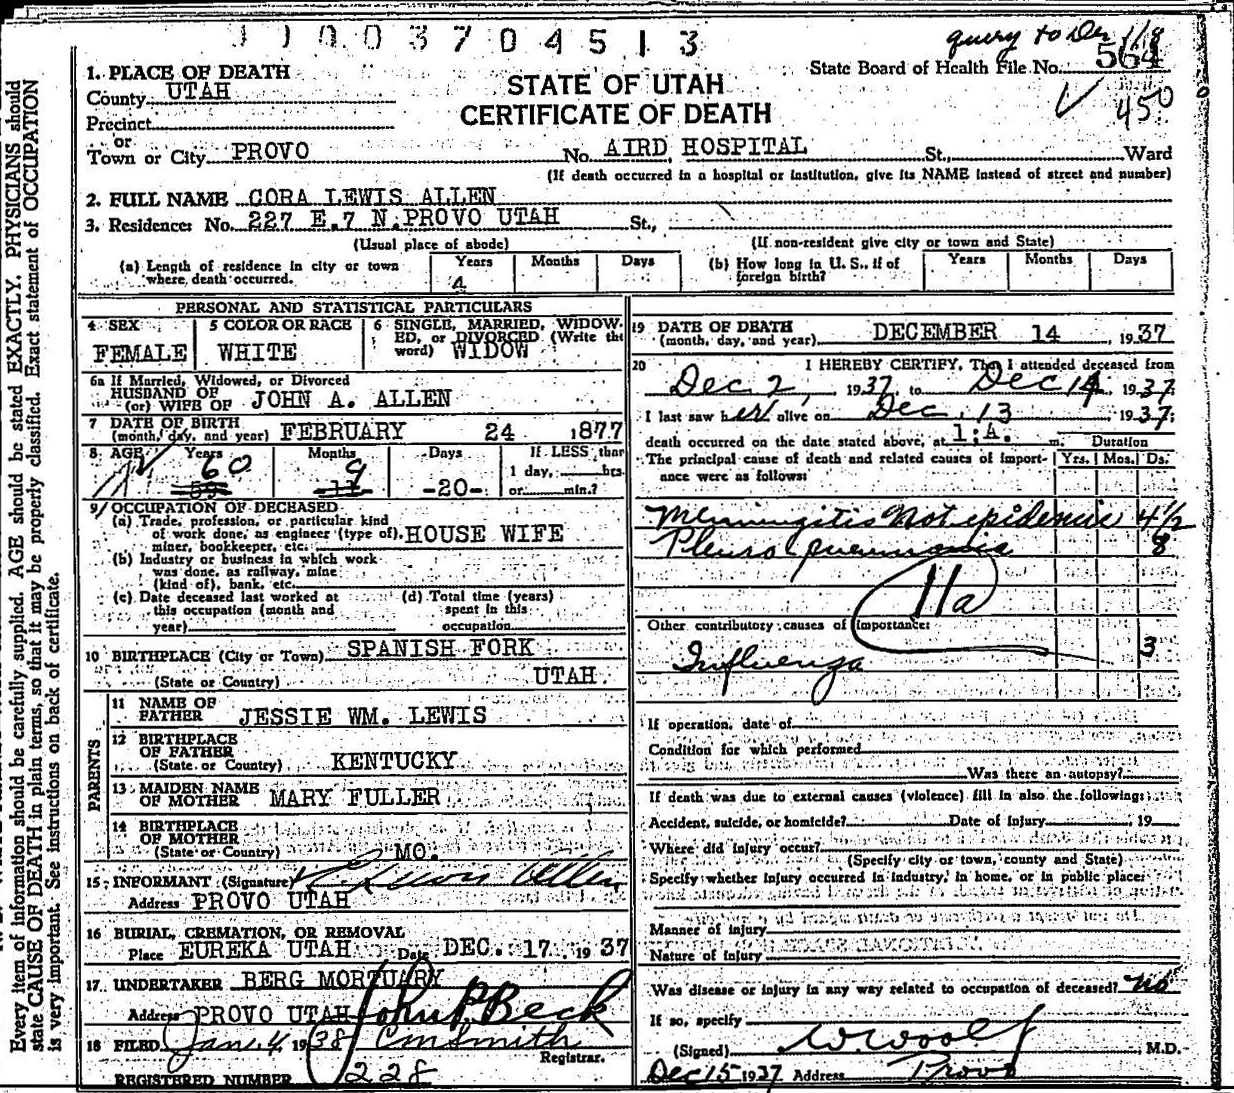 1 1 0 0 3 7 0 4 5 1 3
query to Dr 1/8
State Board of Health File No. 564
450
STATE OF UTAH
CERTIFICATE OF DEATH
1. PLACE OF DEATH
County UTAH
Precinct
or
Town or City PROVO No. AIRD HOSPITAL St., Ward
(If death occurred in a hospital or institution, give its NAME instead of street and number)
2. FULL NAME CORA LEWIS ALLEN
3. Residence: No. 227 E.7 N.PROVO UTAH St.,
(Usual place of abode) (If non-resident give city or town and State)
(a) Length of residence in city or town where death occurred. Years 4 Months Days
(b) How long in U. S., if of foreign birth? Years Months Days
PERSONAL AND STATISTICAL PARTICULARS
4 SEX FEMALE
5 COLOR OR RACE WHITE
6 SINGLE, MARRIED, WIDOWED, or DIVORCED (Write the word) WIDOW
6a If Married, Widowed, or Divorced
HUSBAND OF
(or) WIFE OF JOHN A. ALLEN
7 DATE OF BIRTH
(month, day, and year) FEBRUARY 24 1877
8 AGE Years 60 59 Months 9 11 Days -20- If LESS than
1 day, hrs.
or min.?
9 OCCUPATION OF DECEASED
(a) Trade, profession, or particular kind
of work done, as engineer (type of). HOUSE WIFE
miner, bookkeeper, etc.
(b) Industry or business in which work
was done, as railway, mine
(kind of), bank, etc.
(c) Date deceased last worked at
this occupation (month and
year)
(d) Total time (years)
spent in this
occupation
10 BIRTHPLACE (City or Town) SPANISH FORK
(State or Country) UTAH
PARENTS
11 NAME OF
FATHER JESSIE WM. LEWIS
12 BIRTHPLACE
OF FATHER
(State or Country) KENTUCKY
13 MAIDEN NAME
OF MOTHER MARY FULLER
14 BIRTHPLACE
OF MOTHER
(State or Country) MO.
15 INFORMANT (Signature) Lewis Allen
Address PROVO UTAH
16 BURIAL, CREMATION, OR REMOVAL
Place EUREKA UTAH Date DEC. 17, 1937
17 UNDERTAKER BERG MORTUARY
Address PROVO UTAH John P. Beck
18 FILED Jan. 4, 1938 C M Smith
Registrar.
REGISTERED NUMBER 228
19 DATE OF DEATH
(month, day, and year) DECEMBER 14, 1937
20 I HEREBY CERTIFY, That I attended deceased from
Dec 2, 1937 to Dec 14, 1937
I last saw her alive on Dec. 13 1937;
death occurred on the date stated above, at 1:A. m. Duration
The principal cause of death and related causes of importance were as follows: Yrs. Mos. Ds.
Meningitis Not epidemic 4½
Pleuro pneumonia 8
11a
Other contributory causes of importance:
Influenza 3
If operation, date of
Condition for which performed
Was there an autopsy?
If death was due to external causes (violence) fill in also the following:
Accident, suicide, or homicide? Date of injury 19
Where did injury occur?
(Specify city or town, county and State)
Specify whether injury occurred in industry, in home, or in public place:
Manner of injury
Nature of injury
Was disease or injury in any way related to occupation of deceased? no
If so, specify
(Signed) W Woolf, M.D.
Dec 15 1937 Address Provo
Every item of information should be carefully supplied. AGE should be stated EXACTLY. PHYSICIANS should
state CAUSE OF DEATH in plain terms, so that it may be properly classified. Exact statement of OCCUPATION
is very important. See instructions on back of certificate.